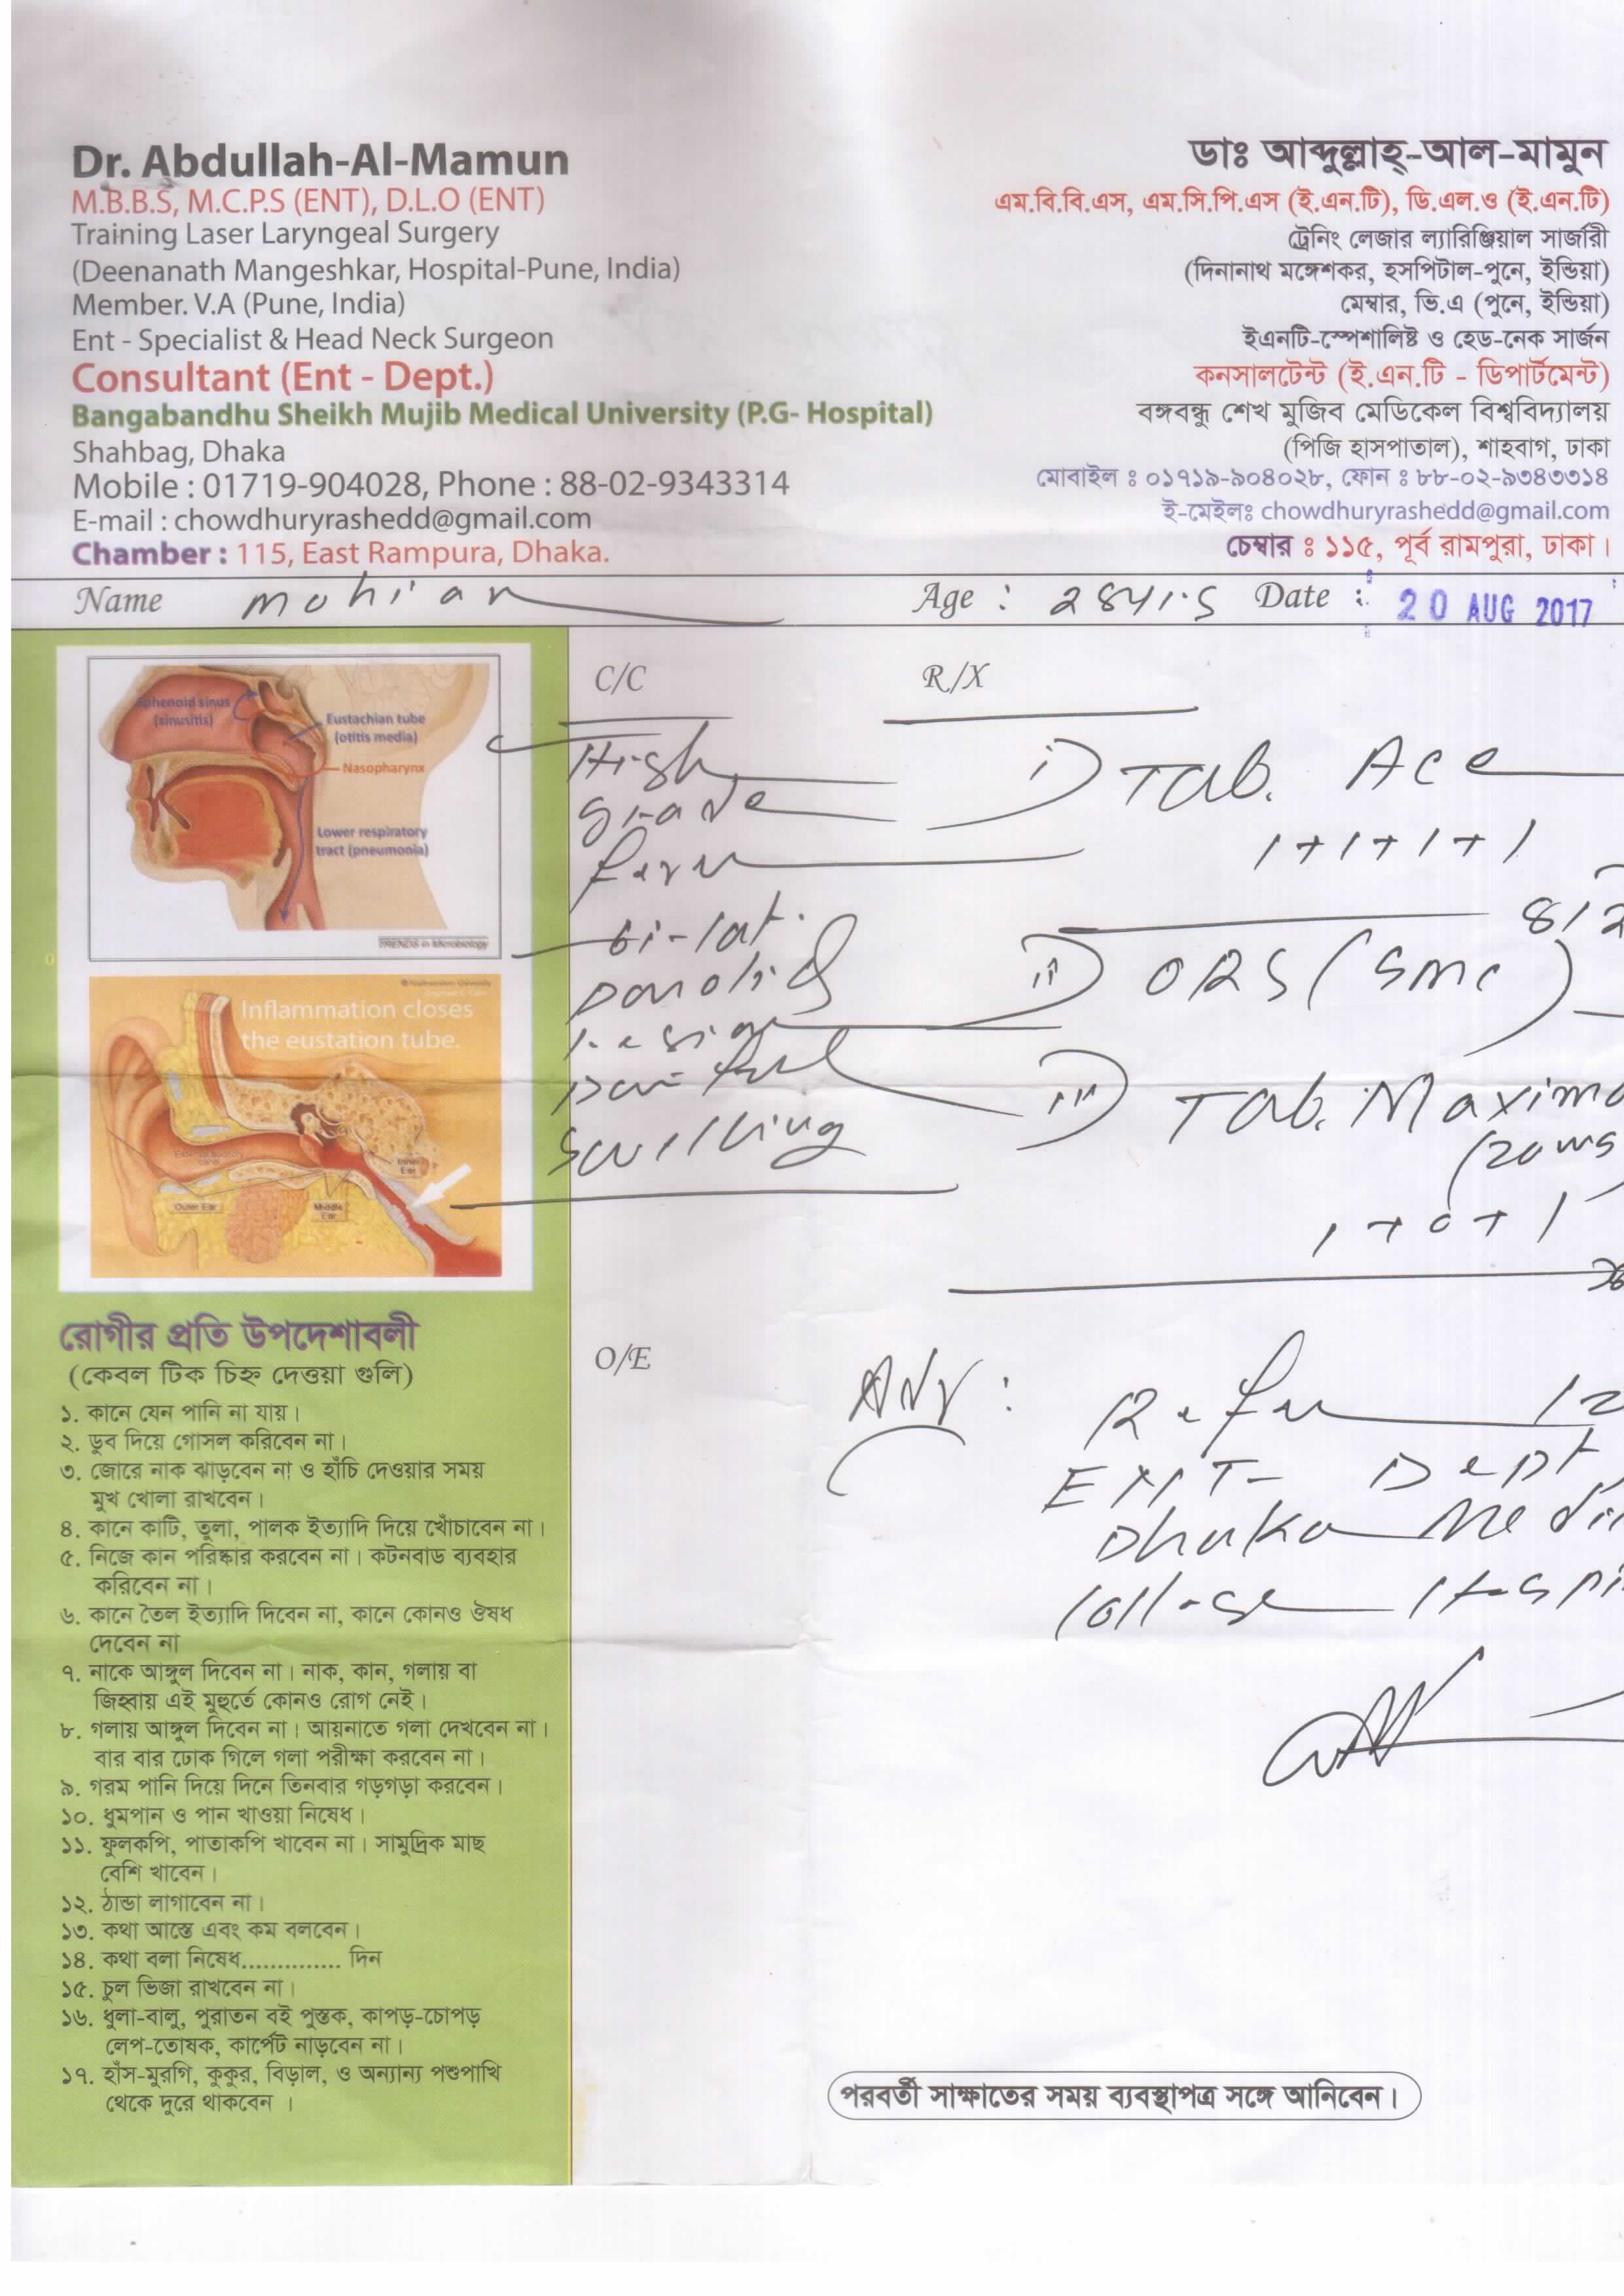 Dr. Abdullah-Al-Mamun
M.B.B.S, M.C.P.S (ENT), D.L.O (ENT)
Training Laser Laryngeal Surgery
(Deenanath Mangeshkar, Hospital-Pune, India)
Member. V.A (Pune, India)
Ent - Specialist & Head Neck Surgeon
Consultant (Ent - Dept.)
Bangabandhu Sheikh Mujib Medical University (P.G- Hospital)
Shahbag, Dhaka
Mobile : 01719-904028, Phone : 88-02-9343314
E-mail : chowdhuryrashedd@gmail.com
Chamber : 115, East Rampura, Dhaka.
ডাঃ আব্দুল্লাহ্-আল-মামুন
এম.বি.বি.এস, এম.সি.পি.এস (ই.এন.টি), ডি.এল.ও (ই.এন.টি)
ট্রেনিং লেজার ল্যারিঞ্জিয়াল সার্জারী
(দিনানাথ মঙ্গেশকর, হসপিটাল-পুনে, ইন্ডিয়া)
মেম্বার, ভি.এ (পুনে, ইন্ডিয়া)
ইএনটি-স্পেশালিষ্ট ও হেড-নেক সার্জন
কনসালটেন্ট (ই.এন.টি - ডিপার্টমেন্ট)
বঙ্গবন্ধু শেখ মুজিব মেডিকেল বিশ্ববিদ্যালয়
(পিজি হাসপাতাল), শাহবাগ, ঢাকা
মোবাইল ঃ ০১৭১৯-৯০৪০২৮, ফোন ঃ ৮৮-০২-৯৩৪৩৩১৪
ই-মেইলঃ chowdhuryrashedd@gmail.com
চেম্বার ঃ ১১৫, পূর্ব রামপুরা, ঢাকা।
Name Age : Date : 20 AUG 2017
Sphenoid sinus
(sinusitis)
Eustachian tube
(otitis media)
Nasopharynx
Lower respiratory
tract (pneumonia)
TRENDS in Microbiology
Inflammation closes
the eustation tube.
Inner
Ear
Outer Ear
Middle
Ear
রোগীর প্রতি উপদেশাবলী
(কেবল টিক চিহ্ন দেওয়া গুলি)
১. কানে যেন পানি না যায়।
২. ডুব দিয়ে গোসল করিবেন না।
৩. জোরে নাক ঝাড়বেন না ও হাঁচি দেওয়ার সময়
মুখ খোলা রাখবেন।
৪. কানে কাটি, তুলা, পালক ইত্যাদি দিয়ে খোঁচাবেন না।
৫. নিজে কান পরিষ্কার করবেন না। কটনবাড ব্যবহার
করিবেন না।
৬. কানে তৈল ইত্যাদি দিবেন না, কানে কোনও ঔষধ
দেবেন না
৭. নাকে আঙ্গুল দিবেন না। নাক, কান, গলায় বা
জিহ্বায় এই মুহুর্তে কোনও রোগ নেই।
৮. গলায় আঙ্গুল দিবেন না। আয়নাতে গলা দেখবেন না।
বার বার ঢোক গিলে গলা পরীক্ষা করবেন না।
৯. গরম পানি দিয়ে দিনে তিনবার গড়গড়া করবেন।
১০. ধুমপান ও পান খাওয়া নিষেধ।
১১. ফুলকপি, পাতাকপি খাবেন না। সামুদ্রিক মাছ
বেশি খাবেন।
১২. ঠান্ডা লাগাবেন না।
১৩. কথা আস্তে এবং কম বলবেন।
১৪. কথা বলা নিষেধ.............. দিন
১৫. চুল ভিজা রাখবেন না।
১৬. ধুলা-বালু, পুরাতন বই পুস্তক, কাপড়-চোপড়
লেপ-তোষক, কার্পেট নাড়বেন না।
১৭. হাঁস-মুরগি, কুকুর, বিড়াল, ও অন্যান্য পশুপাখি
থেকে দুরে থাকবেন ।
C/C
High
grade
bi-lat.
parotid
painful
swelling
O/E
R/X
i) Tab. Ace
1+1+1+1
ii) ORS (SMC)
iii) Tab. Maxima
1+0+1
Adv :
Refer
ENT- Dept
Dhaka Medi
College Hospi
পরবর্তী সাক্ষাতের সময় ব্যবস্থাপত্র সঙ্গে আনিবেন।